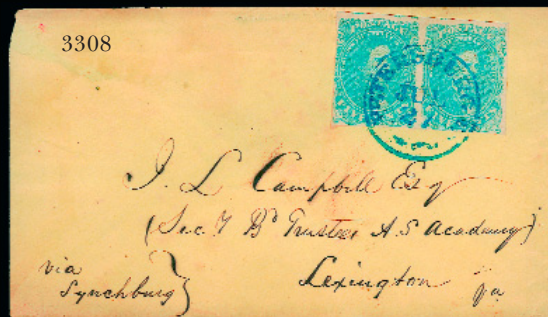 3308
PETERSBURG
J. L Campbell Esq
(Sec. & Bd Trustee A. S Academy)
via
Lynchburg}
Lexington Va